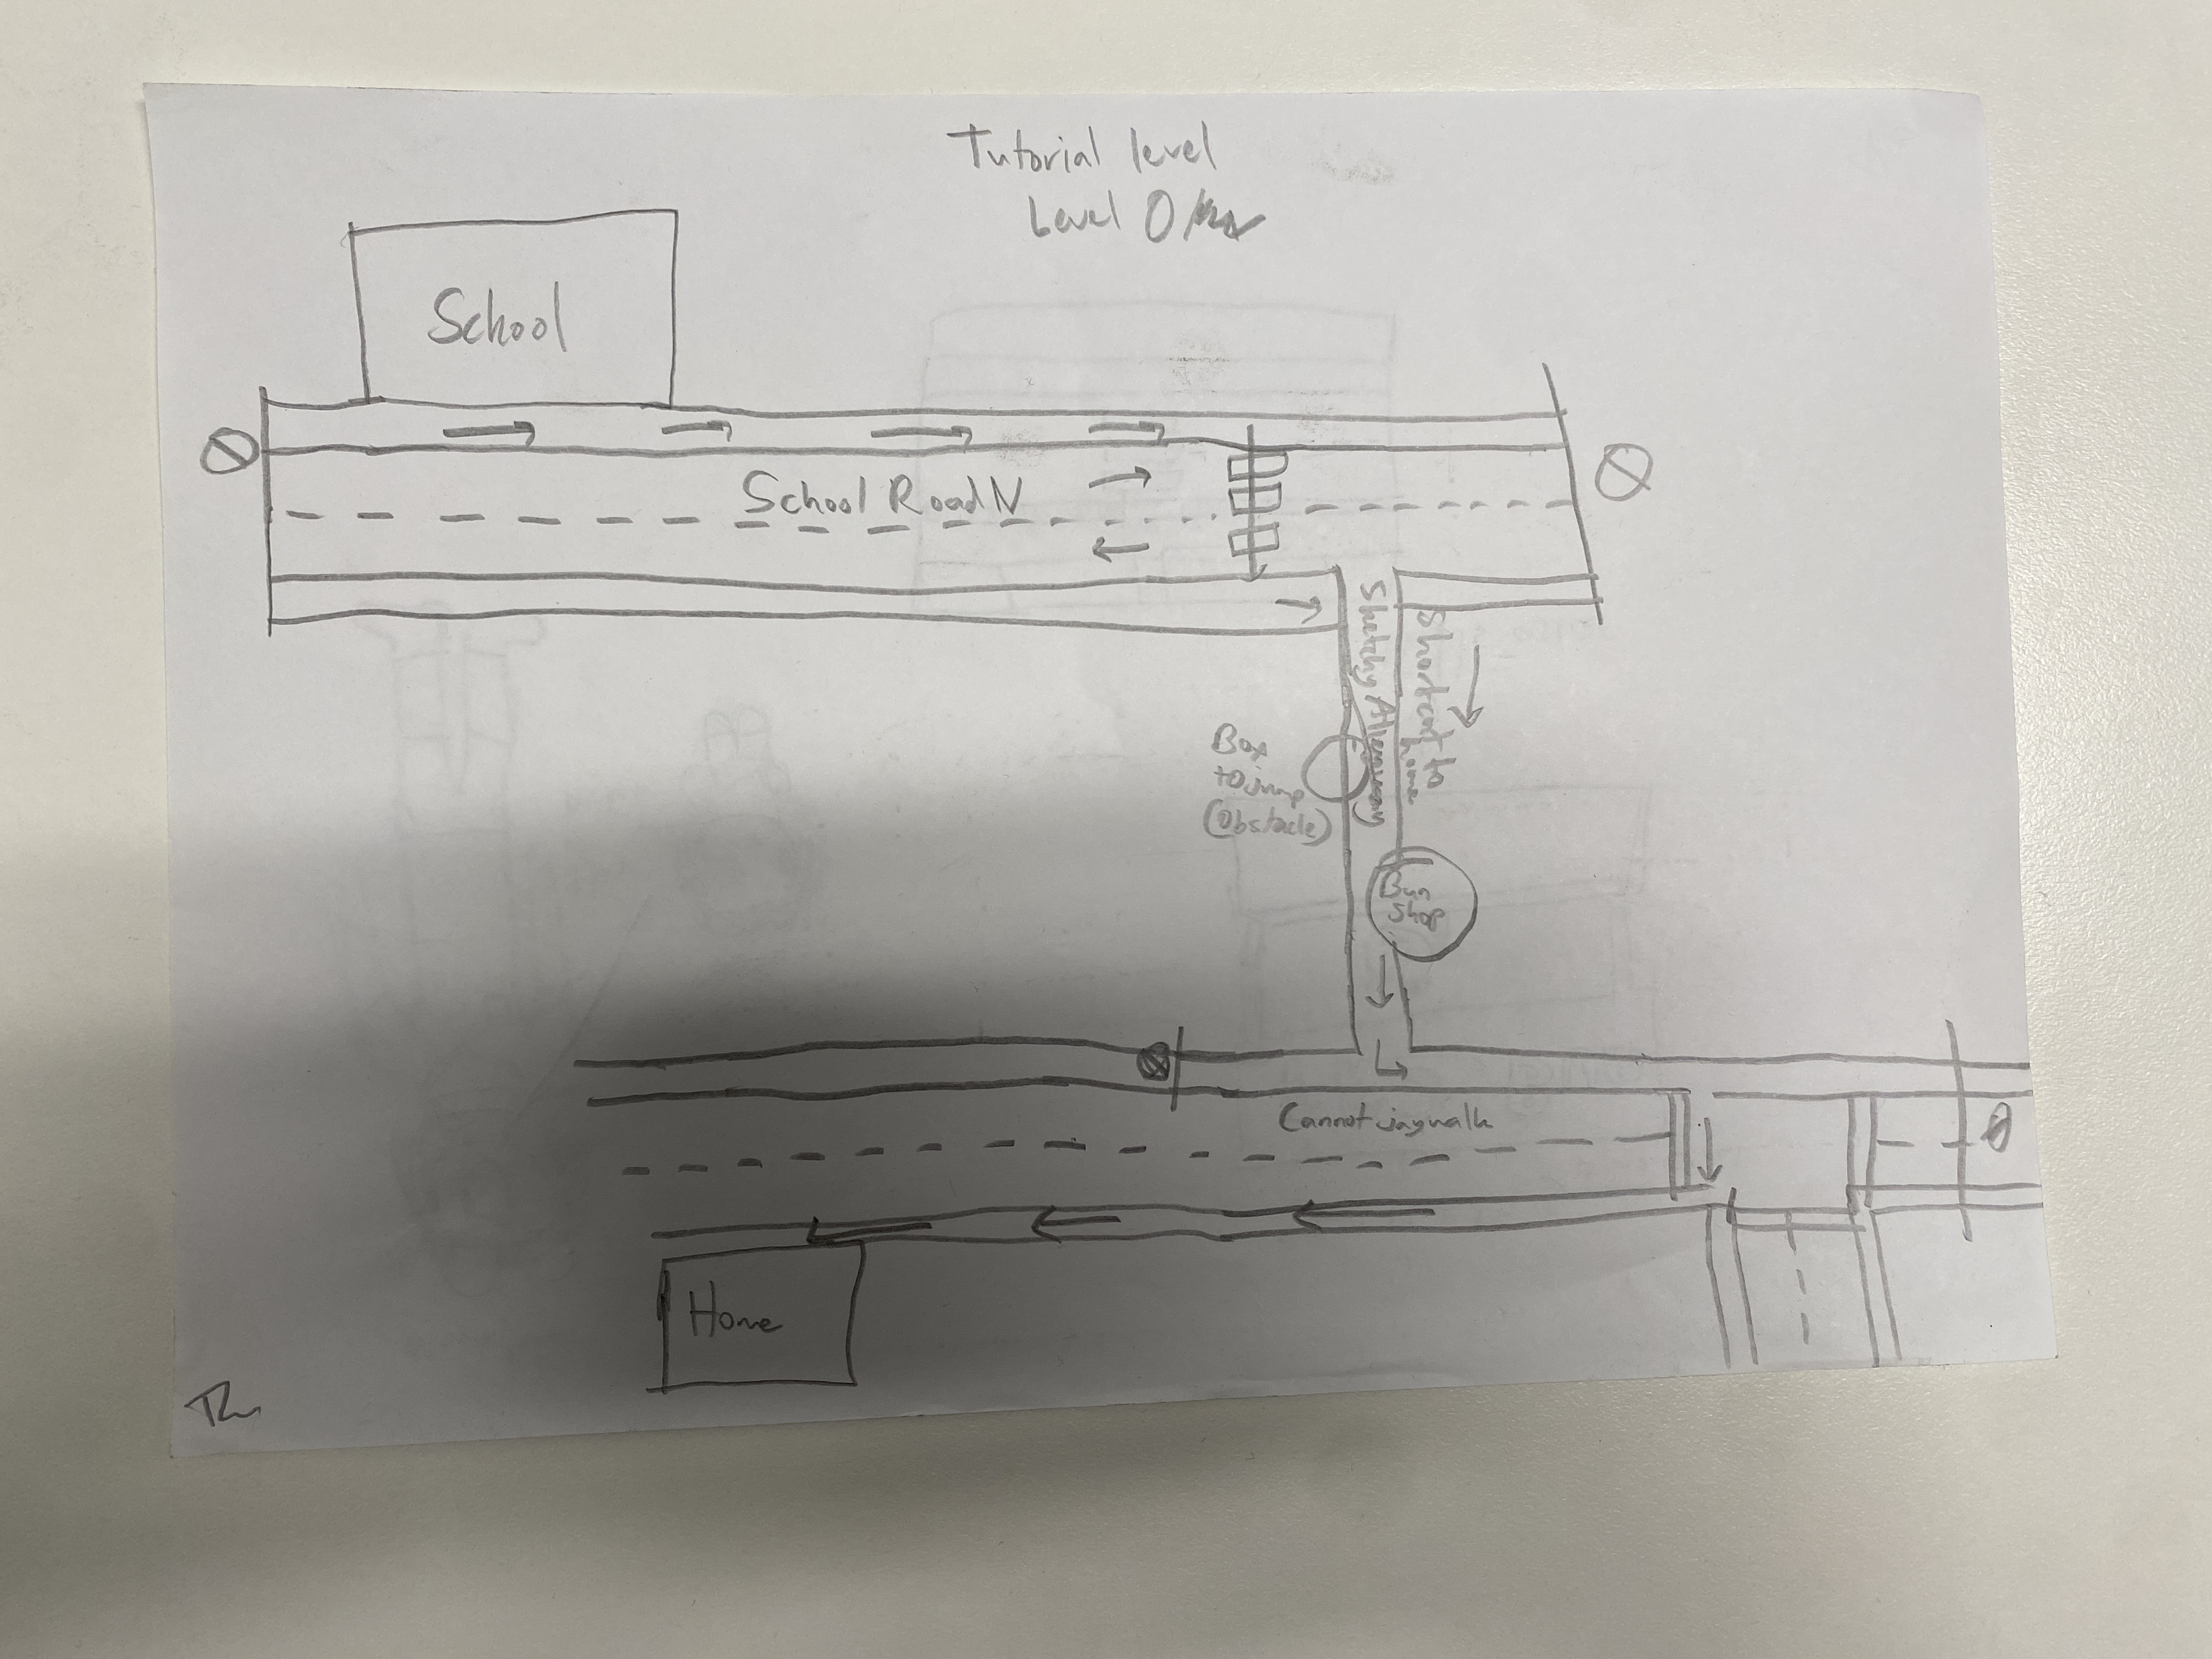 Tutorial level
Level 0
School
School Road N
Sketchy Alleyway
Shortcut to
home
Box
to jump
(Obstacle)
Cannot jaywalk
Home